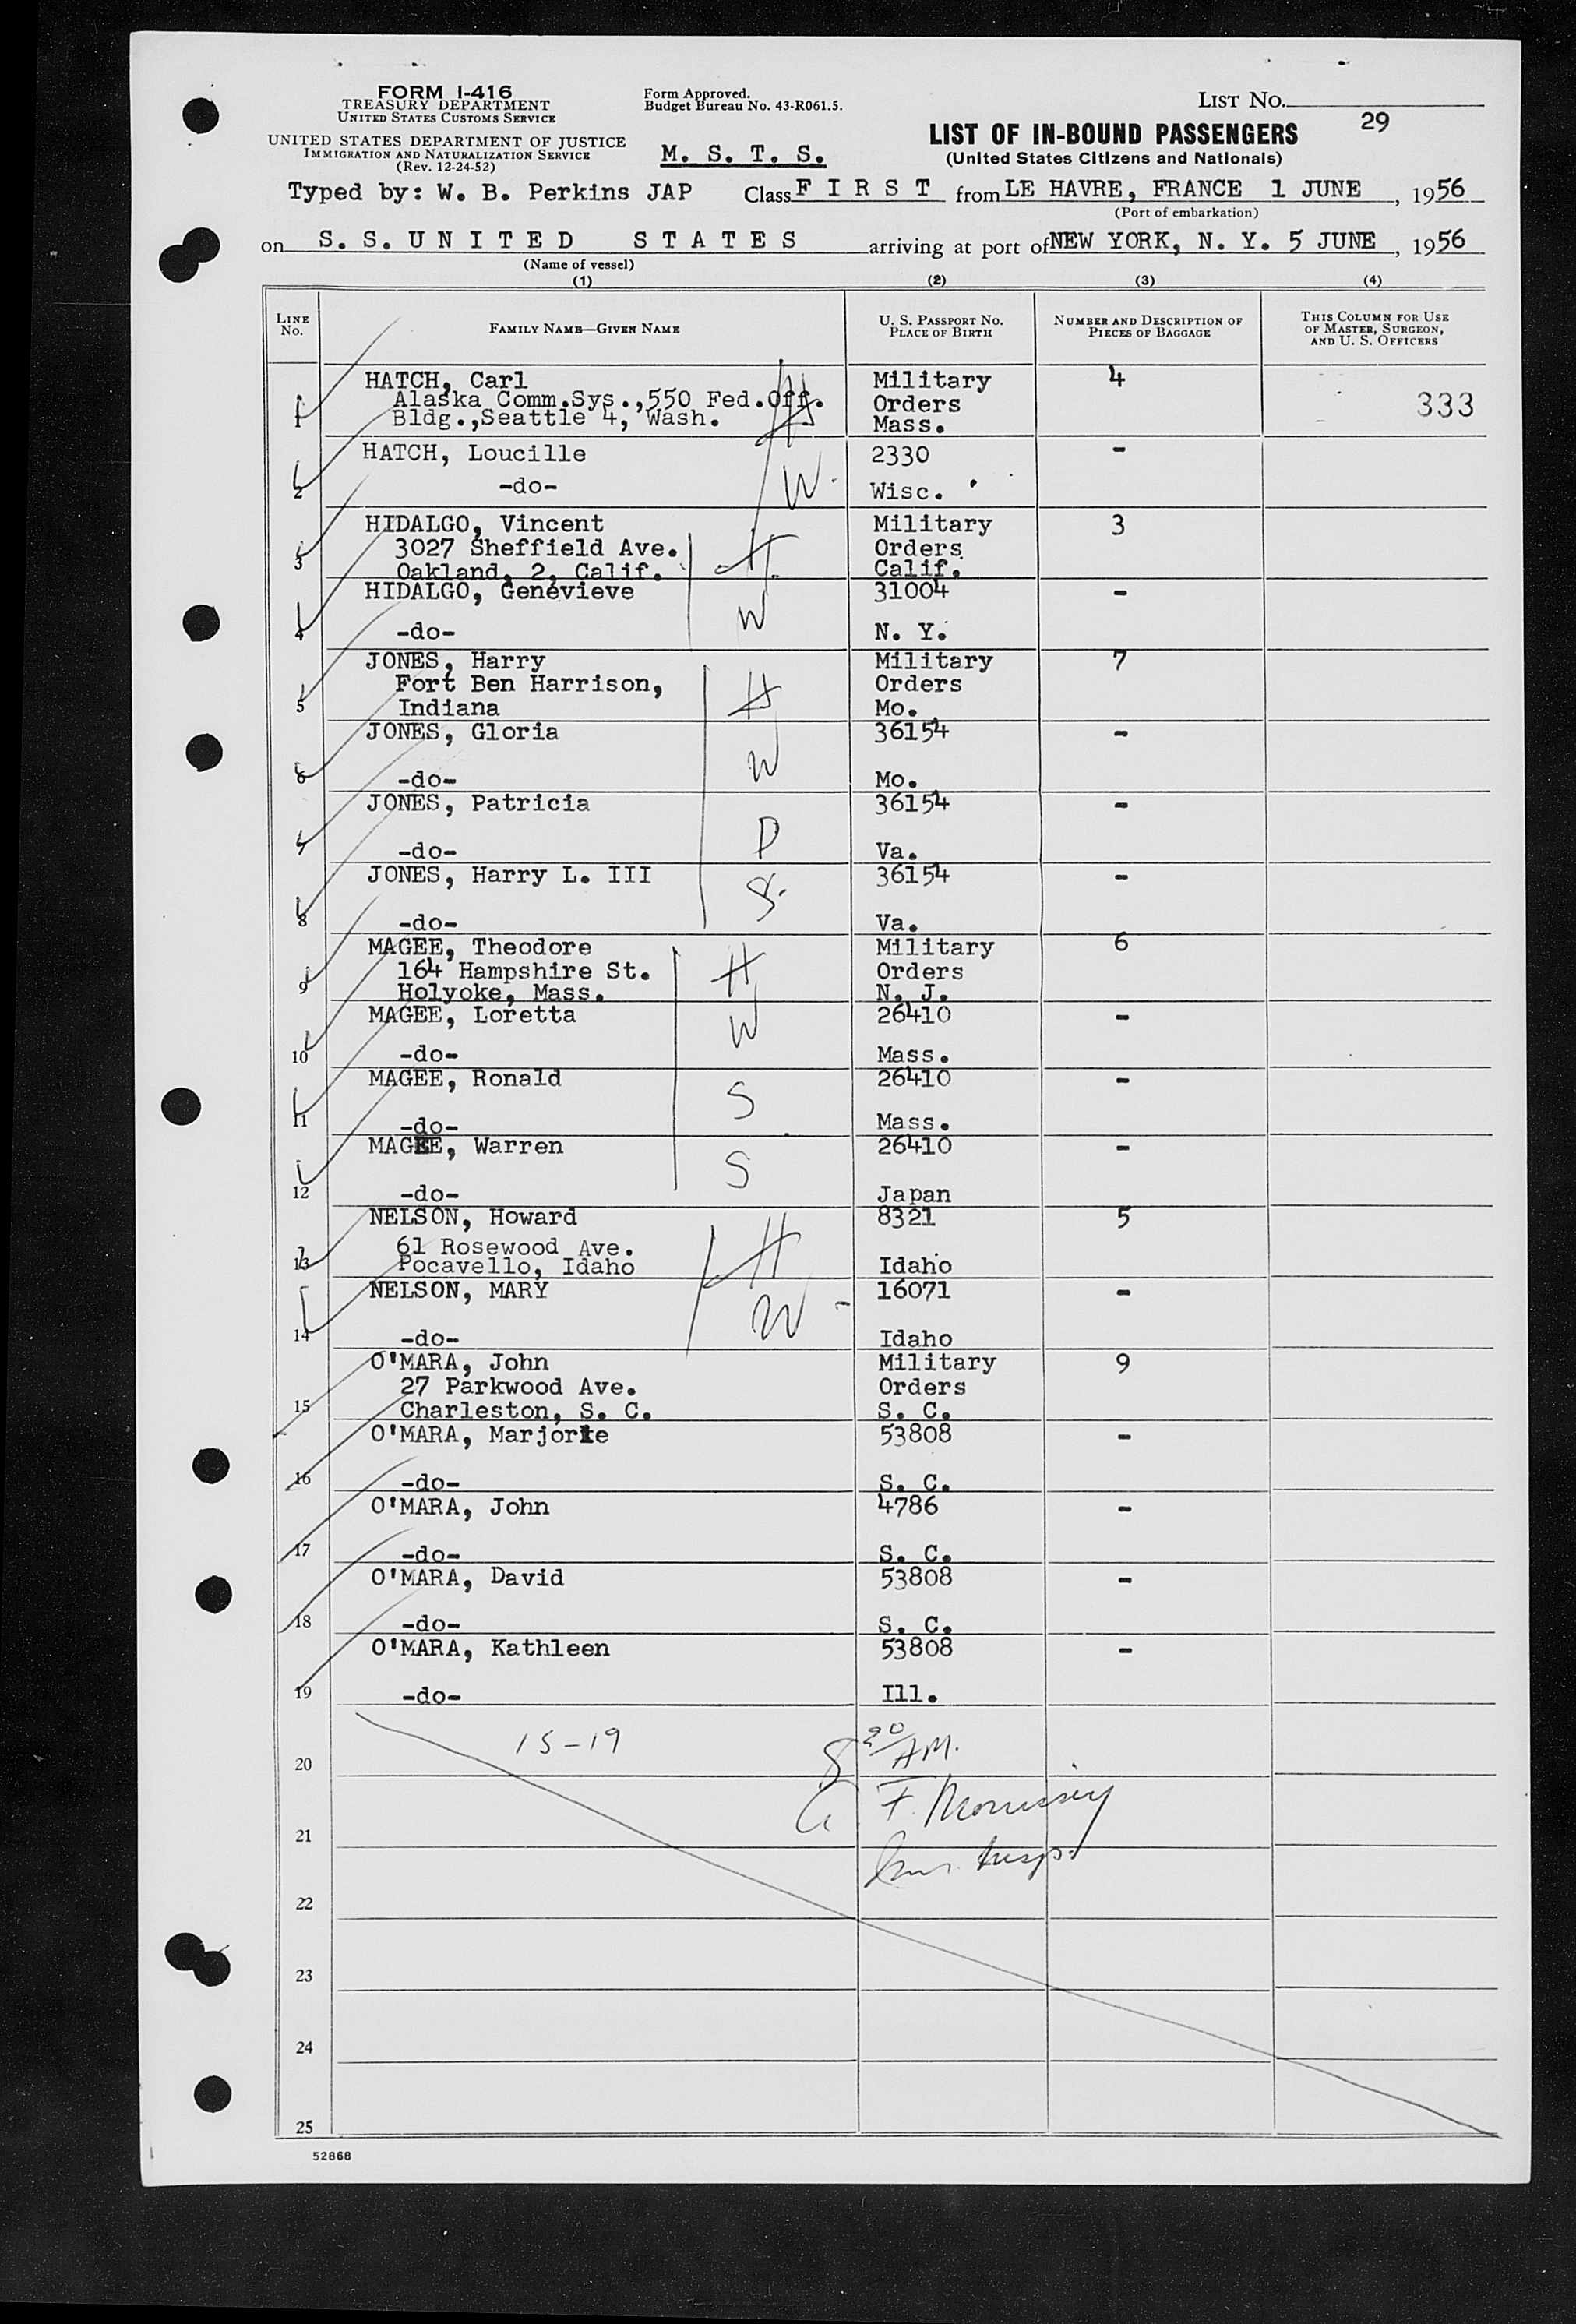 FORM I-416
TREASURY DEPARTMENT
UNITED STATES CUSTOMS SERVICE
UNITED STATES DEPARTMENT OF JUSTICE
IMMIGRATION AND NATURALIZATION SERVICE
(Rev. 12-24-52)
Form Approved.
Budget Bureau No. 43-R061.5.
M. S. T. S.
LIST NO.
29
LIST OF IN-BOUND PASSENGERS
(United States Citizens and Nationals)
Typed by: W. B. Perkins JAP Class F I R S T from LE HAVRE, FRANCE 1 JUNE, 1956
(Port of embarkation)
on S. S. U N I T E D S T A T E S arriving at port of NEW YORK, N. Y. 5 JUNE, 1956
(Name of vessel)
(1) (2) (3) (4)
LINE NO. FAMILY NAME—GIVEN NAME U. S. PASSPORT NO. PLACE OF BIRTH NUMBER AND DESCRIPTION OF PIECES OF BAGGAGE THIS COLUMN FOR USE OF MASTER, SURGEON, AND U. S. OFFICERS
HATCH, Carl Military 4
Alaska Comm.Sys.,550 Fed.Off. H Orders 333
1 Bldg.,Seattle 4, Wash. Mass.
HATCH, Loucille 2330 -
2 -do- W. Wisc.
HIDALGO, Vincent Military 3
3 3027 Sheffield Ave. H. Orders
Oakland, 2, Calif. Calif.
HIDALGO, Genevieve W 31004 -
4 -do- N. Y.
JONES, Harry Military 7
Fort Ben Harrison, H Orders
5 Indiana Mo.
JONES, Gloria W 36154 -
6 -do- Mo.
JONES, Patricia D 36154 -
7 -do- Va.
JONES, Harry L. III S. 36154 -
8 -do- Va.
MAGEE, Theodore Military 6
164 Hampshire St. H Orders
9 Holyoke, Mass. N. J.
MAGEE, Loretta W 26410 -
10 -do- Mass.
MAGEE, Ronald S 26410 -
11 -do- Mass.
MAGEE, Warren S 26410 -
12 -do- Japan
NELSON, Howard 8321 5
61 Rosewood Ave. H
13 Pocavello, Idaho Idaho
NELSON, MARY W - 16071 -
14 -do- Idaho
O'MARA, John Military 9
27 Parkwood Ave. Orders
15 Charleston, S. C. S. C.
O'MARA, Marjorie 53808 -
16 -do- S. C.
O'MARA, John 4786 -
17 -do- S. C.
O'MARA, David 53808 -
18 -do- S. C.
O'MARA, Kathleen 53808 -
19 -do- Ill.
15-19 8 20/AM.
20
F. Morrissey
21
Imm. Insp.
22
23
24
25
52868